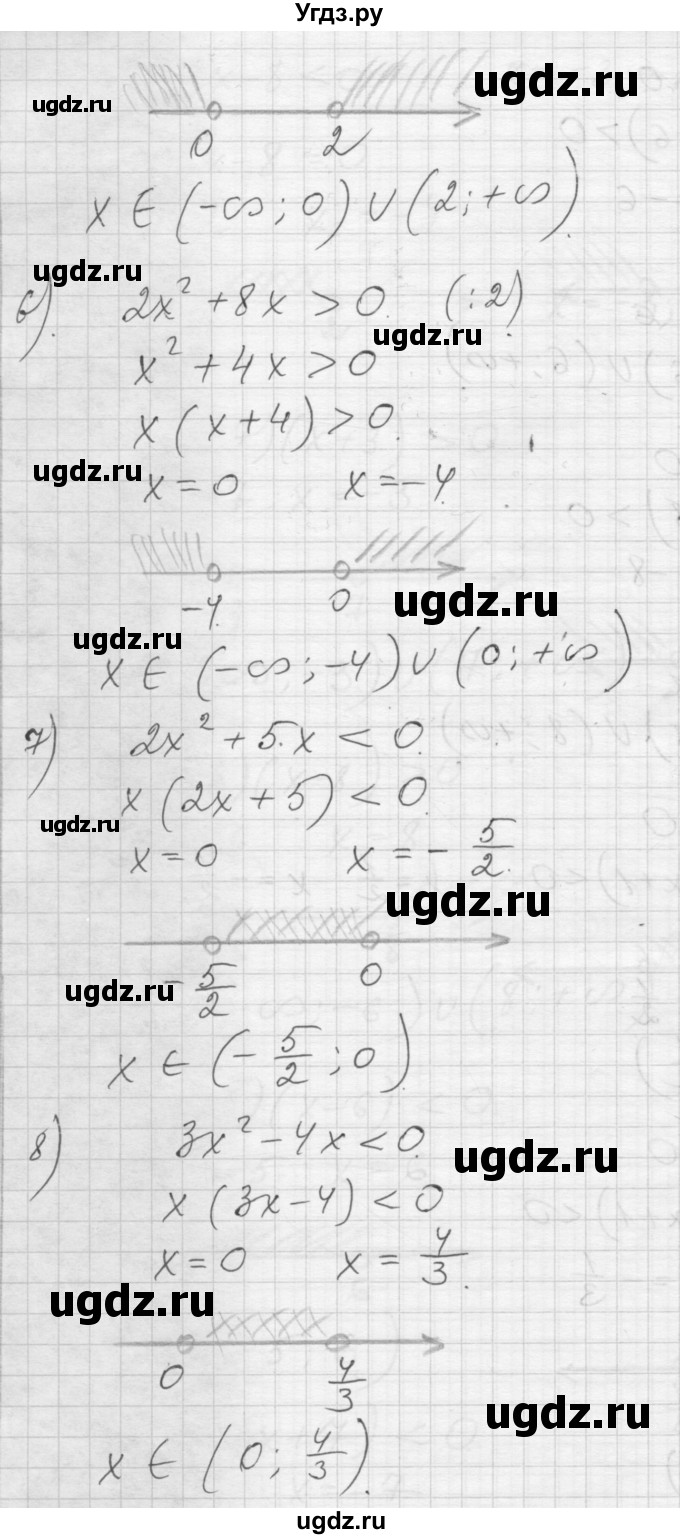 Угдз.ру
ugdz.ru
ugdz.ru
0 2
x ∈ (-∞; 0) ∪ (2; +∞).
ugdz.ru
6). 2x² + 8x > 0. (:2)
ugdz.ru
x² + 4x > 0
x(x+4) > 0.
ugdz.ru
x = 0 x = -4.
-4. 0
ugdz.ru
ugdz.ru
x ∈ (-∞; -4) ∪ (0; +∞)
7) 2x² + 5x < 0.
x(2x + 5) < 0.
ugdz.ru
x = 0 x = - 5/2.
ugdz.ru
- 5/2 0
ugdz.ru
x ∈ (- 5/2; 0).
8) 3x² - 4x < 0.
ugdz.ru
x(3x - 4) < 0
x = 0 x = 4/3.
ugdz.ru
0 4/3
ugdz.ru
x ∈ (0; 4/3).
ugdz.ru